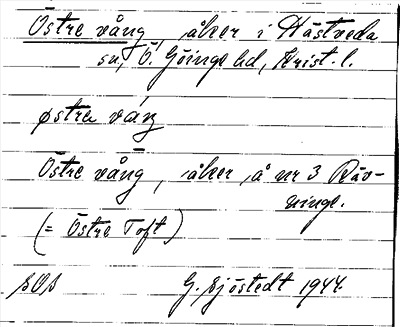 Östre vång, åker i Hästveda
sn, Ö. Göinge hd, Krist. l.
østrə váŋ
Östre vång, åker å nr 3 Röv-
inge.
(= Östre Toft)
G. Sjöstedt 1944